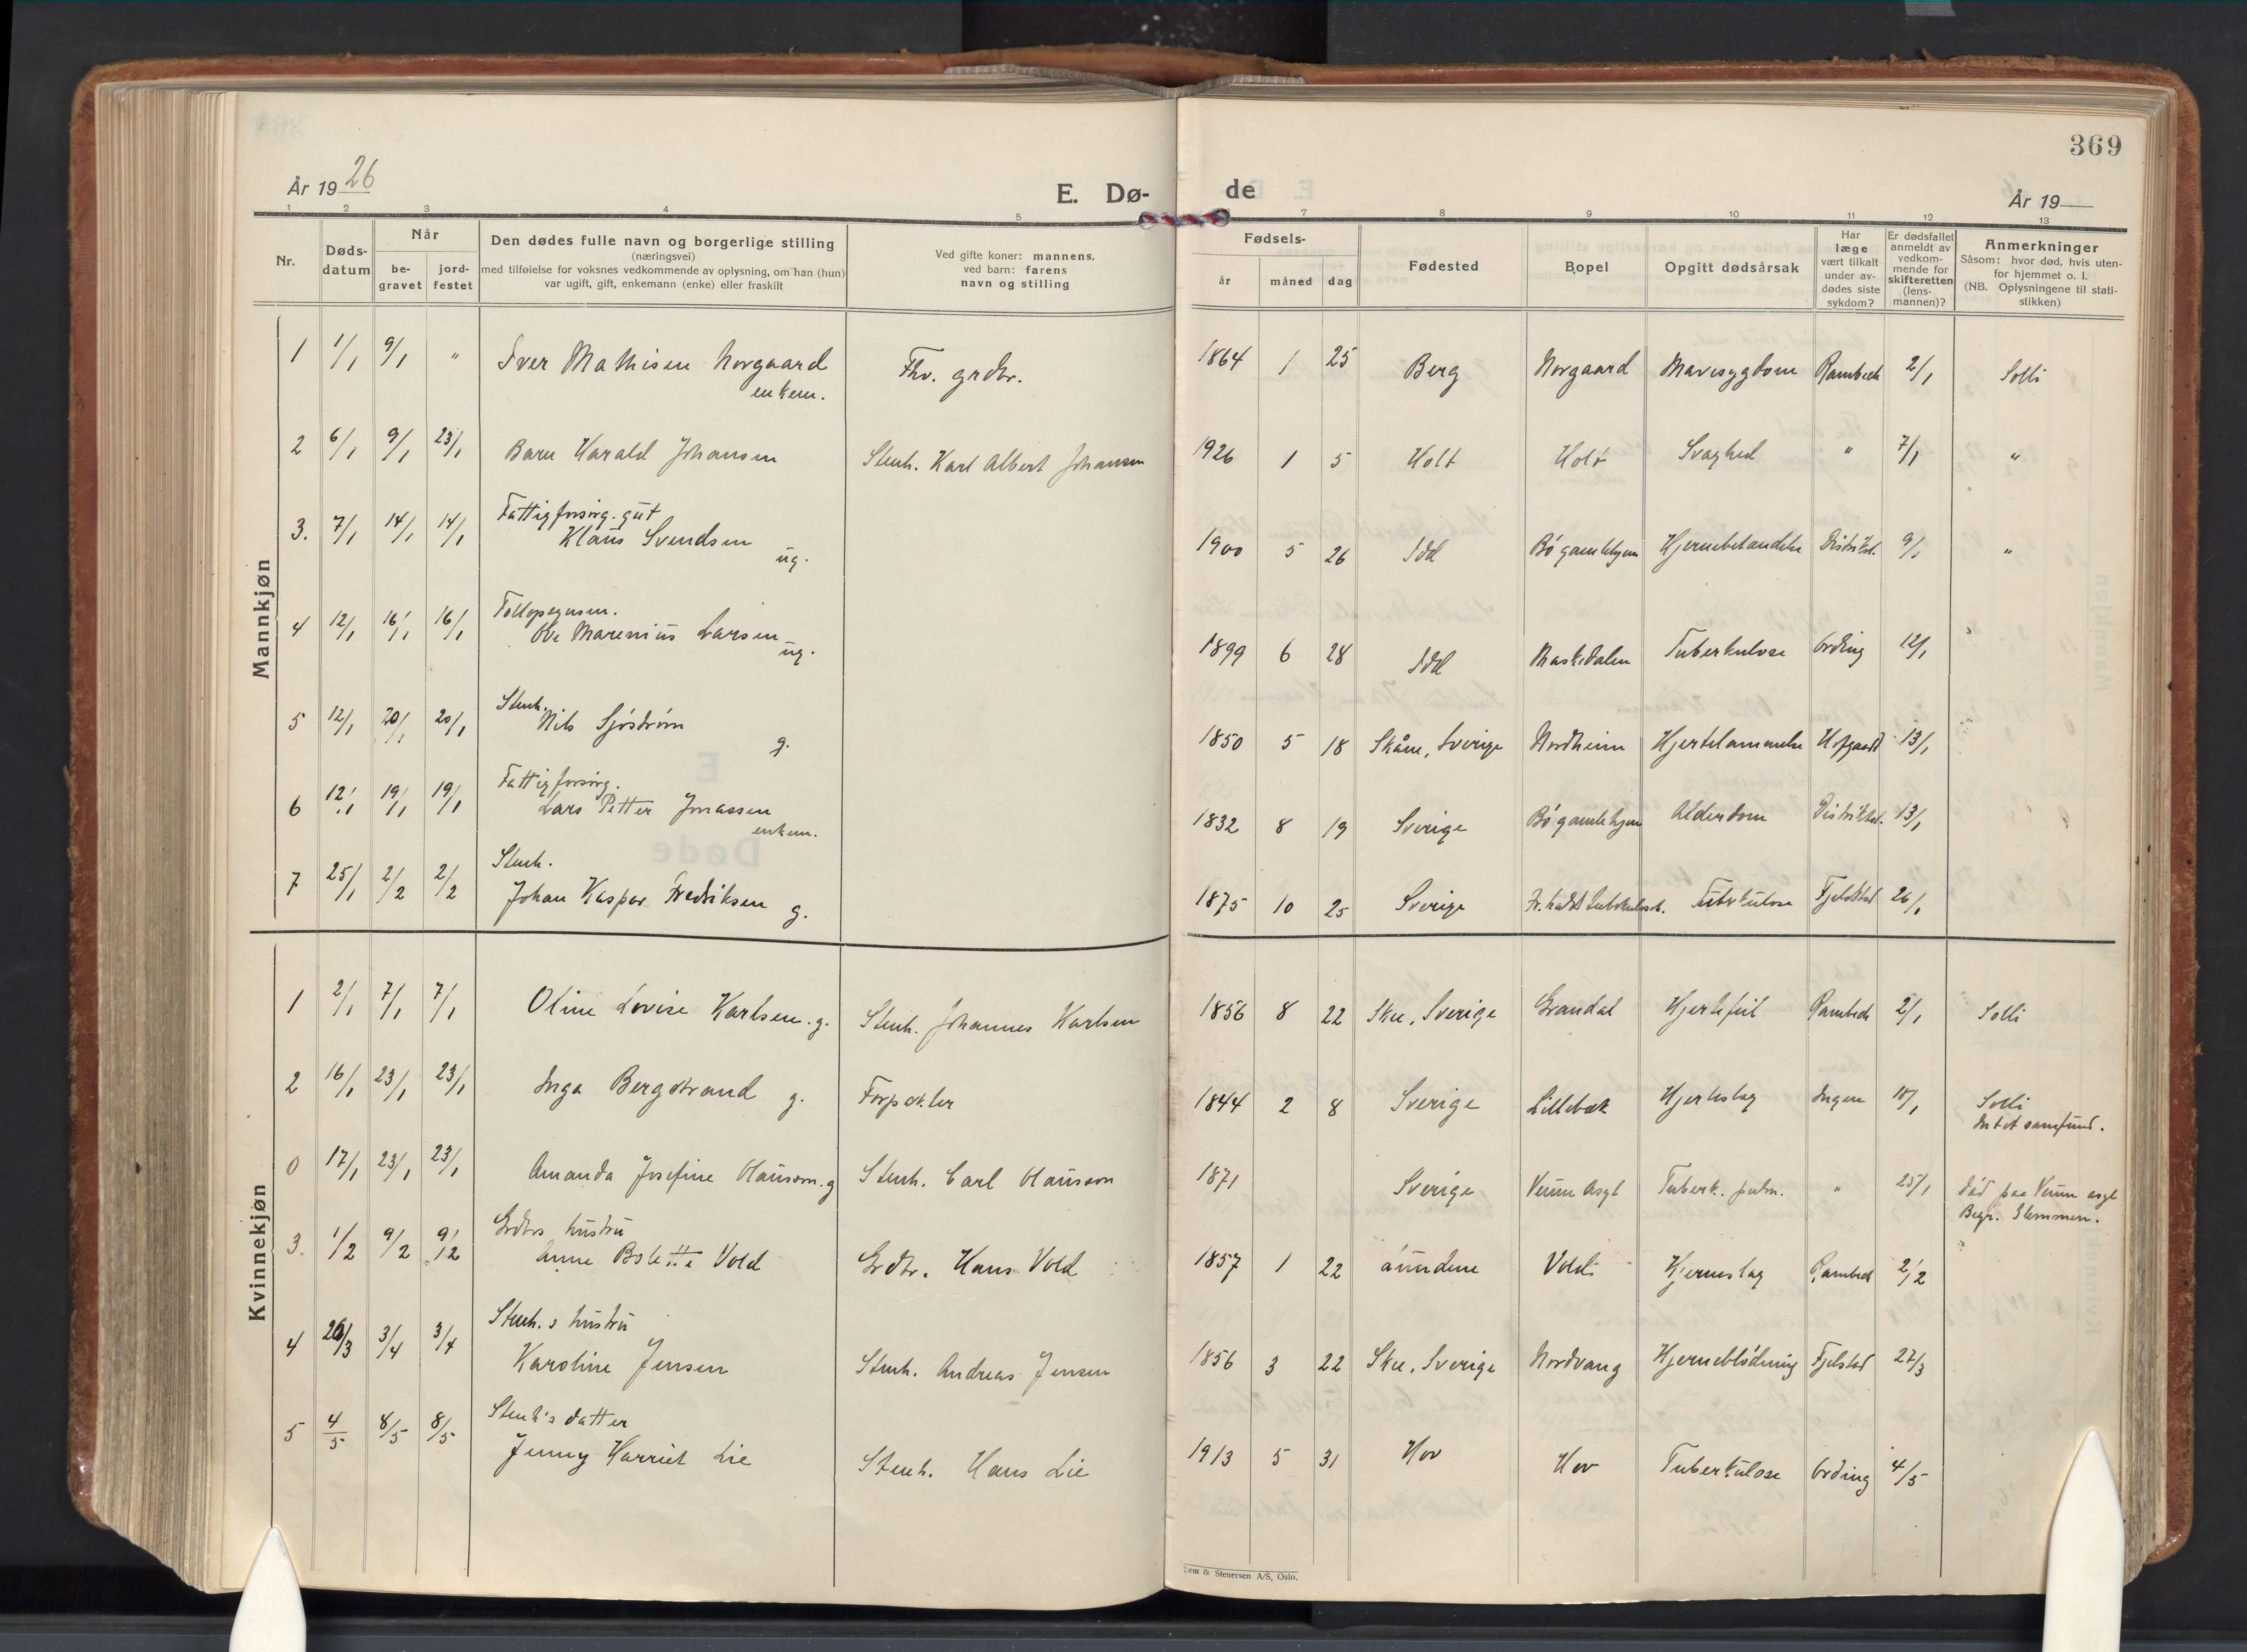 369
År 1926
E. Dø-
de
År 19
1 2 3 4 5
7 8 9 10 11 12 13
Nr.
Døds-
datum
Når
be-
gravet
jord-
festet
Den dødes fulle navn og borgerlige stilling
(næringsvei)
med tilføielse for voksnes vedkommende av oplysning, om han (hun)
var ugift, gift, enkemann (enke) eller fraskilt
Ved gifte koner: mannens,
ved barn: farens
navn og stilling
Fødsels-
år måned dag
Fødested
Bopel
Opgitt dødsårsak
Har
læge
vært tilkalt
under av-
dødes siste
sykdom?
Er dødsfallet
anmeldt av
vedkom-
mende for
skifteretten
(lens-
mannen)?
Anmerkninger
Såsom: hvor død, hvis uten-
for hjemmet o. l.
(NB. Oplysningene til stati-
stikken)
Mannkjøn
1 1/1 9/1 " Iver Mathisen Norgaard Fhv. grdbr. 1864 1 25 Berg Norgaard Mavesygdom Rambech 2/1 Solli
enkem.
2 6/1 9/1 23/1 Barn Harald Johansen Stenh. Karl Albert Johansen 1926 1 5 Holt Holt Svaghed " 7/1 "
Fattigforsørg. gut
3. 7/1 14/1 14/1 Klaus Svendsen 1900 5 26 Idd Bø gamlehjem Hjernebetændelse Distriktsl. 9/1 "
ug.
4 12/1 16/1 16/1 Ole Marenius Larsen 1899 6 28 Idd Tuberkulose Ording 12/1
ug.
Stenh.
5 12/1 20/1 20/1 Nils Sjöström 1850 5 18 Skåne, Sverige Nordheim Hjertelammelse Hofgaard 13/1
g.
Fattigforsørg.
6 12/1 19/1 19/1 Lars Petter Jonassen 1832 8 19 Sverige Bø gamlehjem Alderdom Distriktsl. 13/1
enkem.
Stenh.
7 25/1 2/2 2/2 Johan Kaspar Fredriksen g. 1875 10 25 Sverige Tuberkulose Fjeldstad 26/1
Kvinnekjøn
1 2/1 7/1 7/1 Oline Lovise Karlsen. g. Stenh. Johannes Karlsen 1856 8 22 Skee, Sverige Grandal Hjertefeil Rambech 2/1 Solli
2 16/1 23/1 23/1 Inga Bergstrand g. Forpakter 1844 2 8 Sverige Lillebæk Hjerteslag Ingen 18/1 Solli
Intet samfund.
0 17/1 23/1 23/1 Amanda Josefine Hansson. g Stenh. Carl Hansson 1871 Sverige Veum Asyl Tuberk. pulm. " 25/1 død paa Veum asyl
Begr. Glemmen.
Grdbrs hustru
3. 1/2 9/2 9/2 Anne Bolette Vold Grdbr. Hans Vold 1857 1 22 Vold Hjerneslag Rambech 2/2
Stenh.s hustru
4 26/3 3/4 3/4 Karoline Jensen Stenh. Andreas Jensen 1856 3 22 Skee, Sverige Nordvang Hjerneblødning Fjelstad 27/3
Stenh's datter
5 4/5 8/5 8/5 Jenny Harriet Lie Stenh. Hans Lie 1913 5 31 Hov Hov Tuberkulose Ording 4/5
Sem & Stenersen A/S, Oslo.